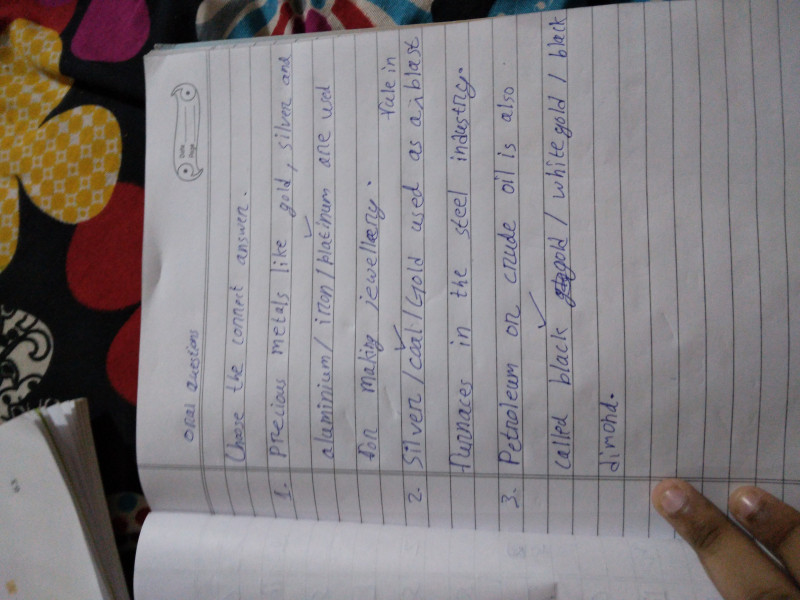 Date
Page
oral questions
Choose the correct answer.
1. Precious metals like gold, silver and
alaminium/ iron/platinum are used
for making jewellery.
2. Silver/coal/Gold used as a blast
furnaces in the steel industry.
3. Petroleum or crude oil is also
called black gold/ white gold/ black
dimond.